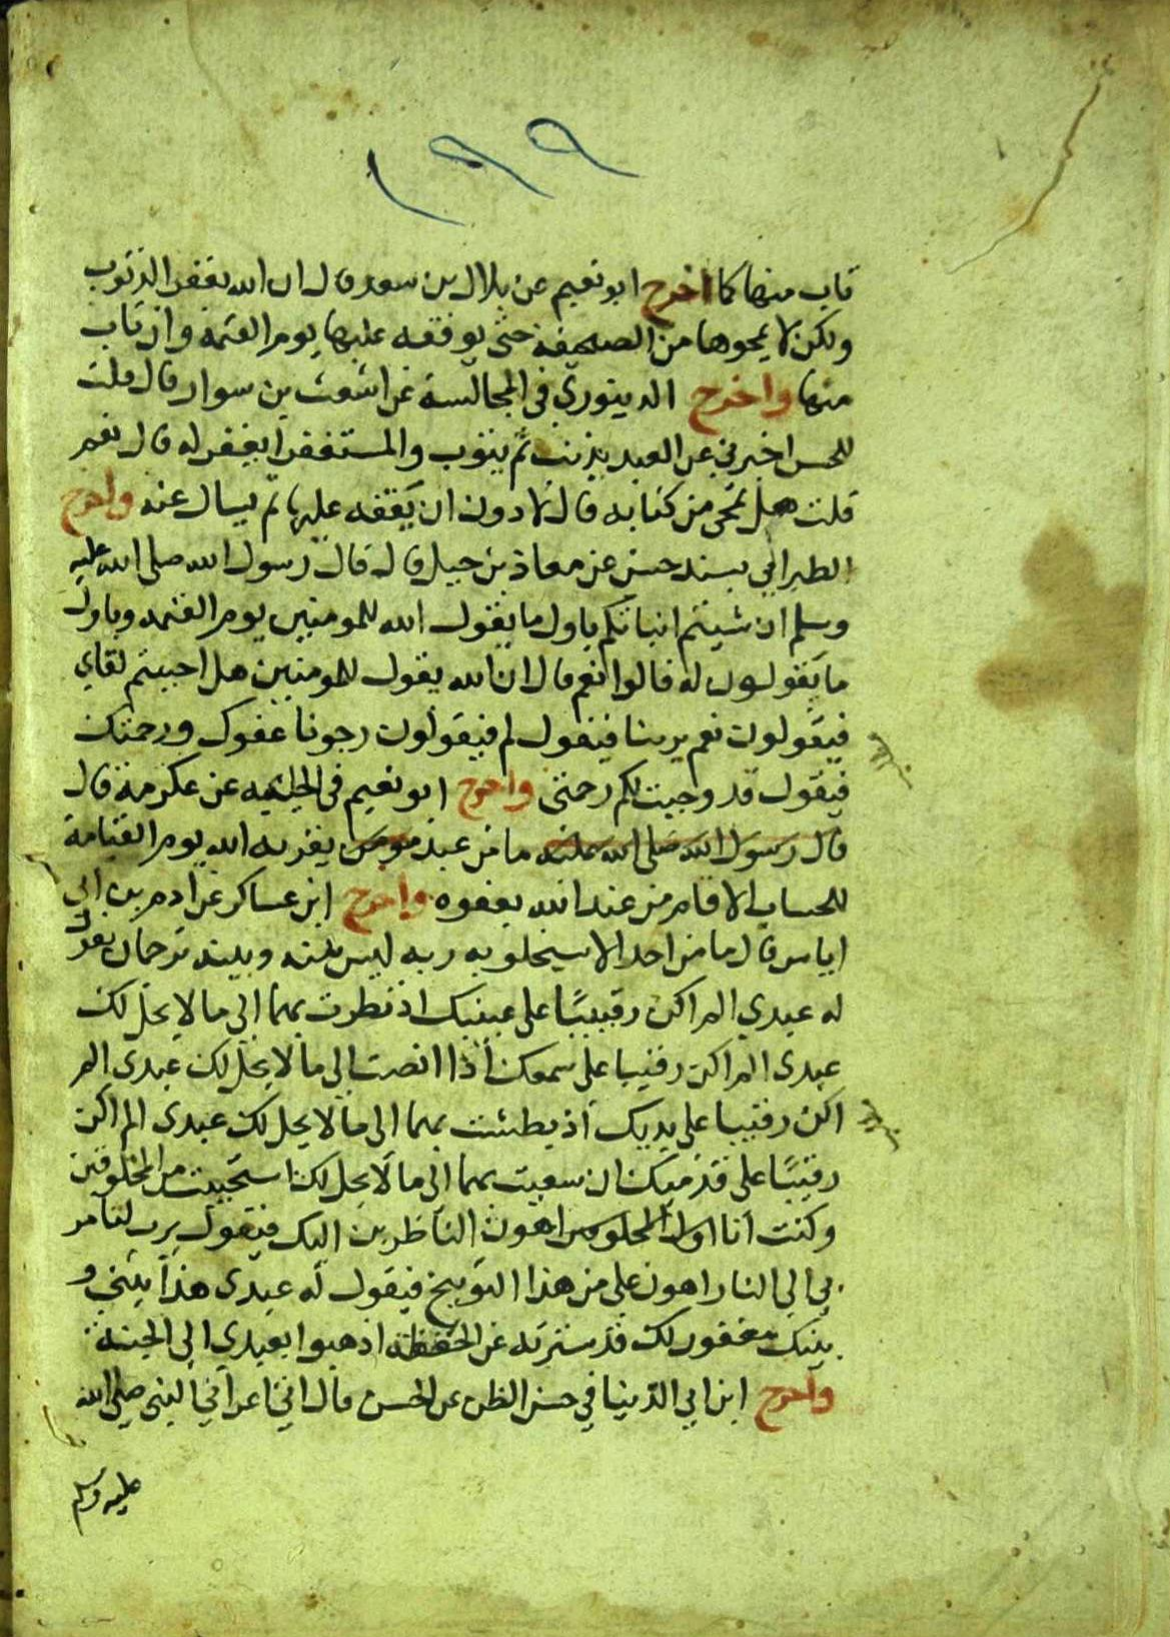 ١٩٩
تاب منها كما اخرج ابو نعيم عن بلال بن سعد قال ان الله يغفر الذنوب
ولكن لا يمحوها من الصحيفة حتى يوقفه عليها يوم القيمة وان تاب
منها واخرج الدينوري في المجالسة عن اشعث بن سوار قال قلت
للحسن اخبرني عن العبد يذنب ثم يتوب والمستغفر ايغفر له قال نعم
قلت هل تمحى من كتابه قال لا دون ان يقفه عليها ثم يسال عنه واخرج
الطبراني بسند حسن عن معاذ بن جبل قال قال رسول الله صلى الله عليه
وسلم ان شيتم انباتكم باول ما يقول الله للمومنين يوم القيمه وباول
ما يقولون له قالوا نعم قال ان الله يقول للمومنين هل احببتم لقاي
فيقولون نعم يربنا فيقول لم فيقولون رجونا عفوك ورحمتك
فيقول قد وجبت لكم رحمتى واخرج ابو نعيم في الحليه عن عكرمة قال
قال رسول الله صلى الله عليه ما من عبد مومن يقربه الله يوم القيامة
للحساب الا قام من عند الله بعفوه واخرج ابن عساكر عن ادم بن ابي
اياس قال ما من احد الا سيخلو به ربه ليس بينه وبينه ترجمان يقول
له عبدي الم اكن رقيبًا على عينيك اذ نظرت بهما الى ما لا يحل لك
عبدى الم اكن رقيبا على سمعك اذا انصت الى ما لا يحل لك عبدى الم
اكن رقيبا على يديك اذ بطشت بهما الى ما لا يحل لك عبدى الم اكن
رقيبًا على قدميك ان سعيت بهما الى ما لا يحل لك استحييت من المخلوقين
وكنت انا اول المخلوقين اهون الناظرين اليك فيقول يرب لتامر
بي الى النار اهون على من هذا التوبيخ فيقول له عبدى هذا بيني و
بينك مغفور لك قد سترته عن الحفظة اذهبوا بعبدى الى الجنة
واخرج ابن ابي الدنيا في حسن الظن عن الحسن قال اتى اعرابي النبى صلى الله
عليه وسلم